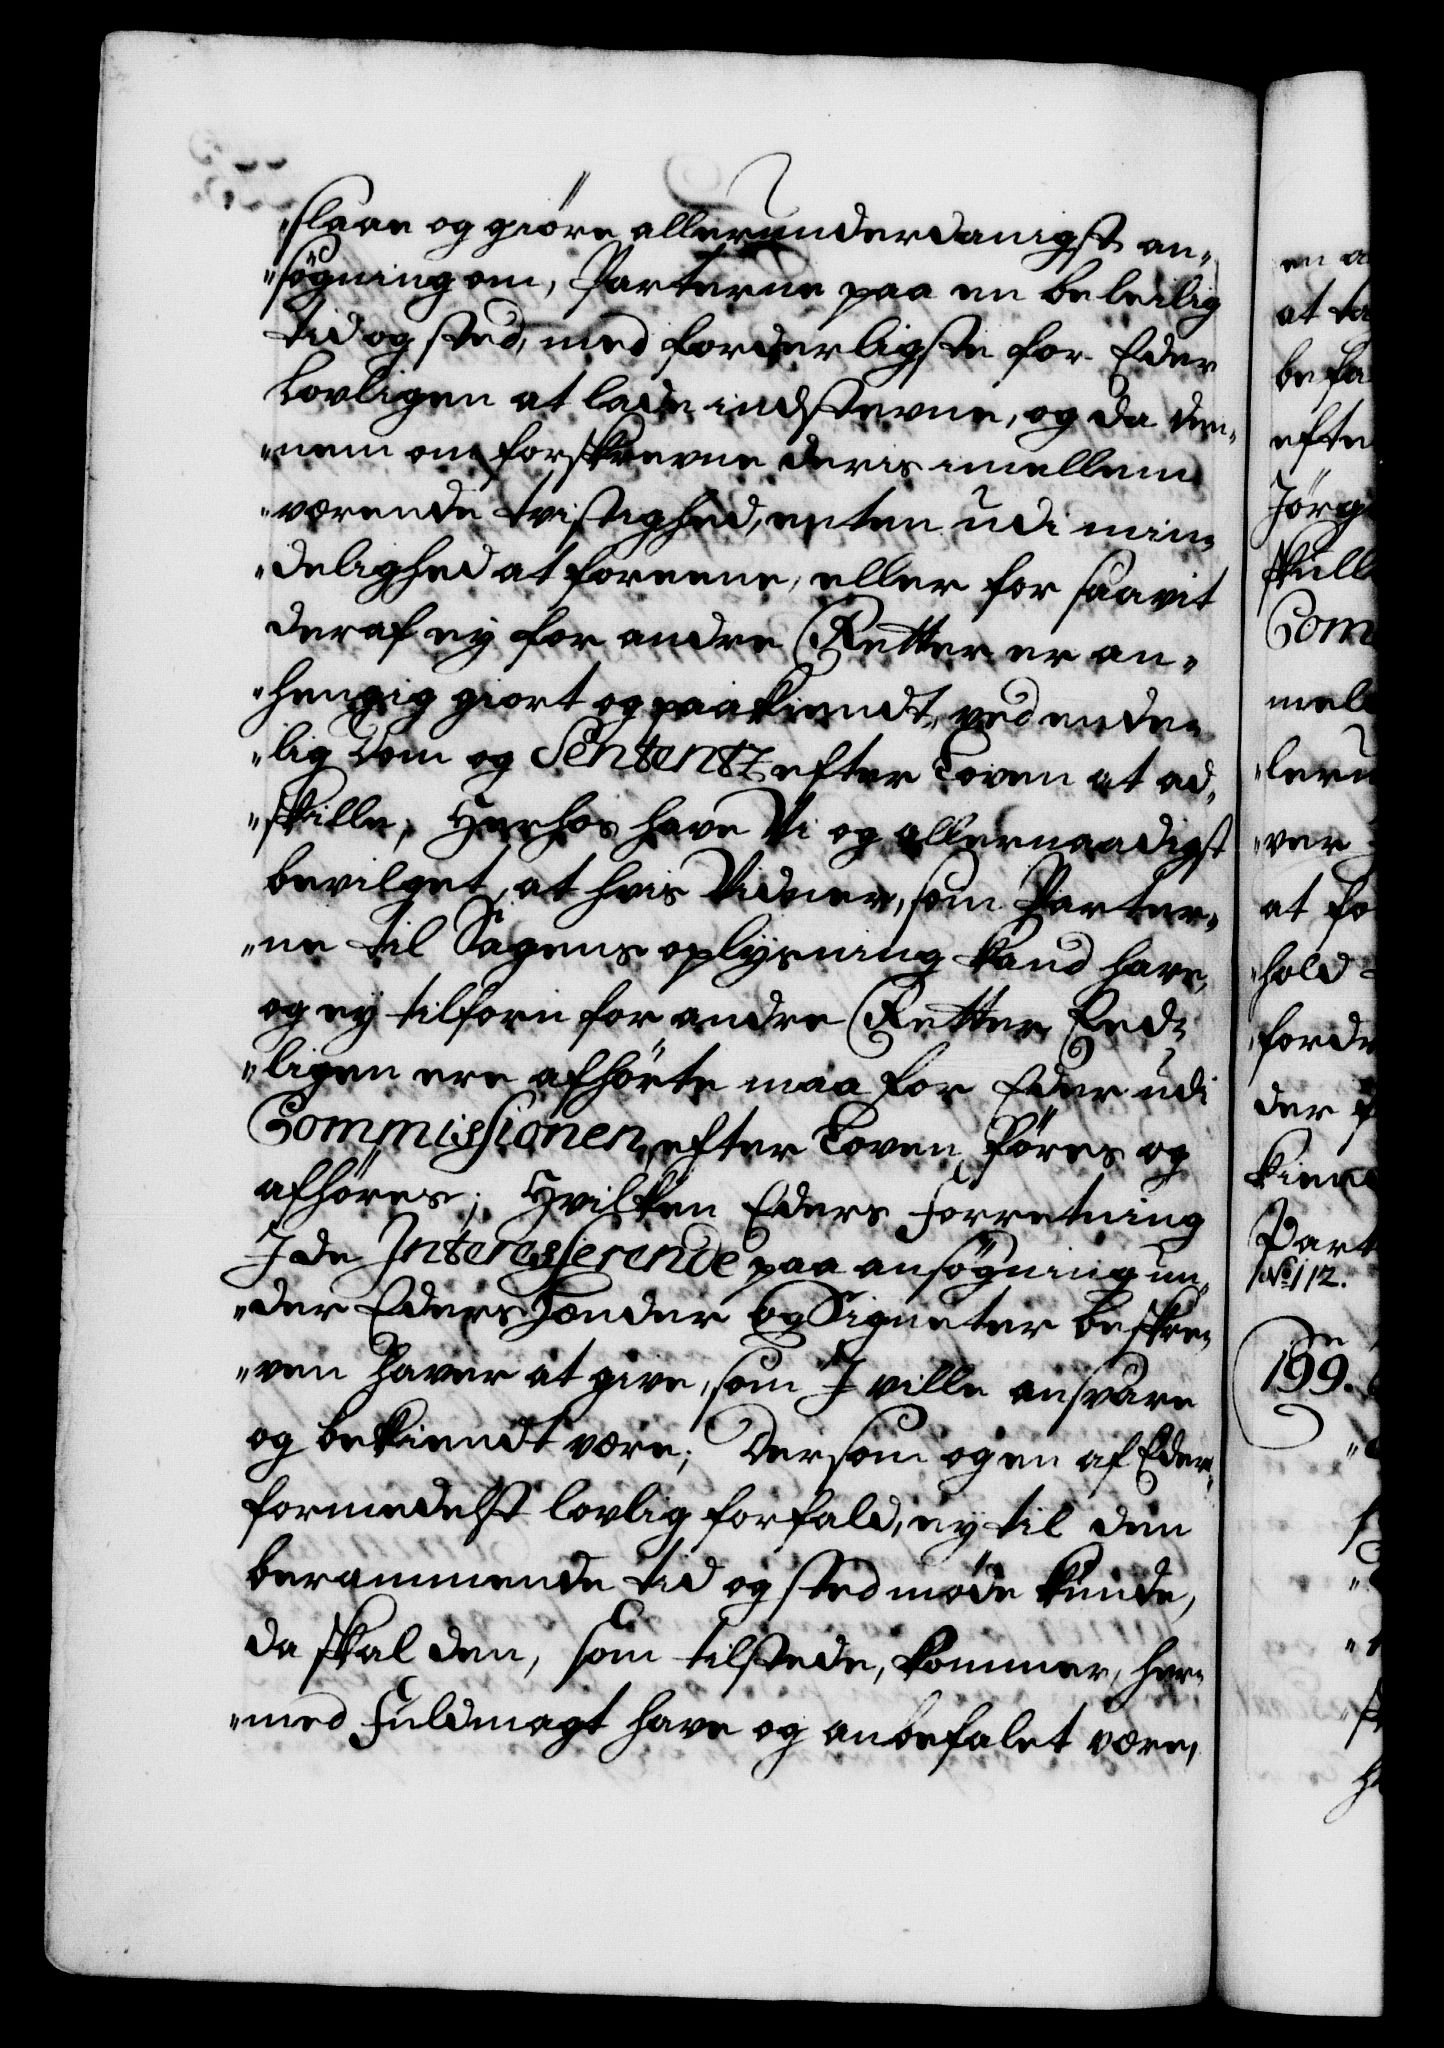 „slaae og giöre allerunderdanigst an„
„sögning om, Parterne paa en beleilig
tid og sted, med forderligste for Eder
lovligen at lade indstevne, og da den„
„nem om forskrevne deris imellem
„værende tvistighed, enten udi min„
„delighed at foreene, eller for saavit
deraf ey for andre Retter er an„
„hengig giort og paakiendt, ved ende„
„lig dom og Sententz efter Loven at ad„
„skille; Herhos have Vi og allernaadigst
bevilget, at hvis Vidner, som Parter„
„ne til Sagens oplysning kand have,
og ey tilforn for andre Retter Eed„
„ligen ere afhörte maa for Eder udi
Commissionen efter Loven föres og
afhöres; Hvilken Eders Forretning
I de Interesserende paa ansögning un„
„der Eders Hænder og Signeter beskre„
„ven haver at give, som I ville ansvare
og bekiendt være; Dersom ogen af Eder
formedelst lovlig forfald, ey til den
berammende tid og sted möde kunde,
da skal den, som tilstede kommer, her„
„med Fuldmagt have og anbefalet være,
en a
at ta
befa
efte
Jörg
skull
Com
mel
„leru
„ver
at fo
„hold
fordr
der
kien
Part
No 112.
199.